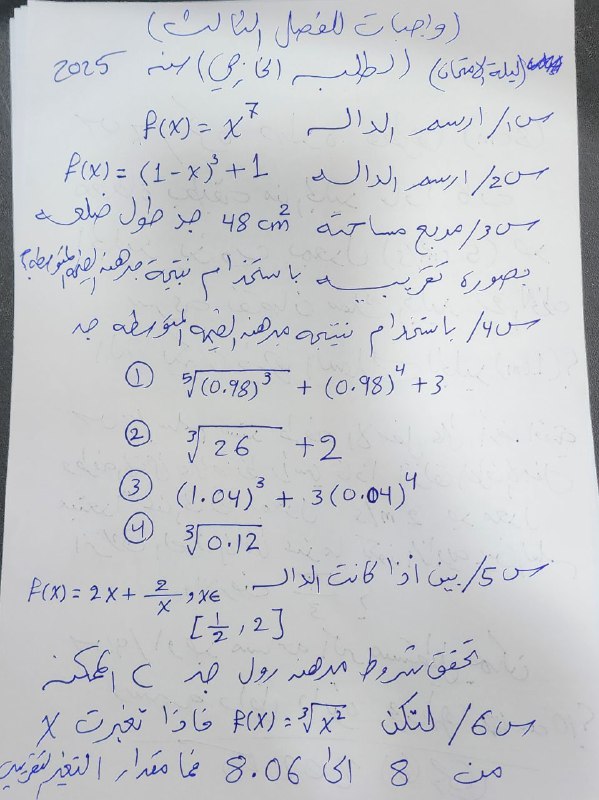 (واجبات للفصل الثالث)
(ليلة الامتحان) (الطلبه الخارجي) سنه 2025
س1/ ارسم الداله f(x) = x⁷
س2/ ارسم الداله f(x) = (1-x)³ + 1
س3/ مربع مساحته 48 cm² جد طول ضلعه
بصوره تقريبيه باستخدام نتيجة مبرهنه القيمه المتوسطه؟
س4/ باستخدام نتيجه مبرهنه القيمه المتوسطه جد
① ⁵√(0.98)³ + (0.98)⁴ + 3
② ³√26 + 2
③ (1.04)³ + 3(0.04)⁴
④ ³√0.12
س5/ بين اذا كانت الداله f(x) = 2x + 2/x , x∈
[1/2 , 2]
تحقق شروط مبرهنه رول جد C الممكنه
س6/ لتكن f(x) = ³√x² فاذا تغيرت x
من 8 الى 8.06 فما مقدار التغير التقريبي